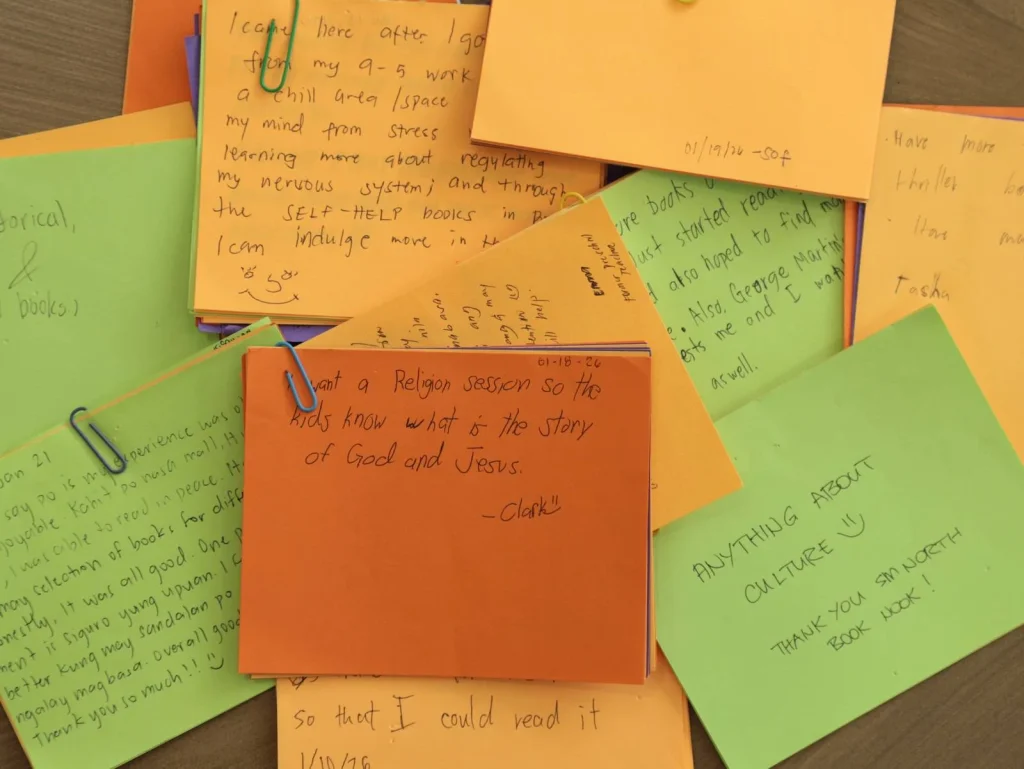 I came here after I go
from my 9-5 work
a chill area/space
my mind from stress
learning more about regulating
my nervous system; and through
the SELF-HELP books in
I can indulge more in th
01/19/26 -sof
Have more
thriller
Tasha
torical,
&
books,
ore books
Just started read
also hoped to find
. Also, George Martin
me and I wat
aswell.
01-18-26
want a Religion session so the
kids know what is the story
of God and Jesus.
-Clark
an 21
say po is my experience was
joyable kahit po nasa mall, H
, I was able to read in peace. It
may selection of books for diff
onestly, it was all good. One
ment is siguro yung upuan. I
better kung may sandalan po
ngalay magbasa. Overall good
Thank you so much!!!
ANYTHING ABOUT
CULTURE
THANK YOU SM NORTH
BOOK NOOK!
so that I could read it
1/10/26